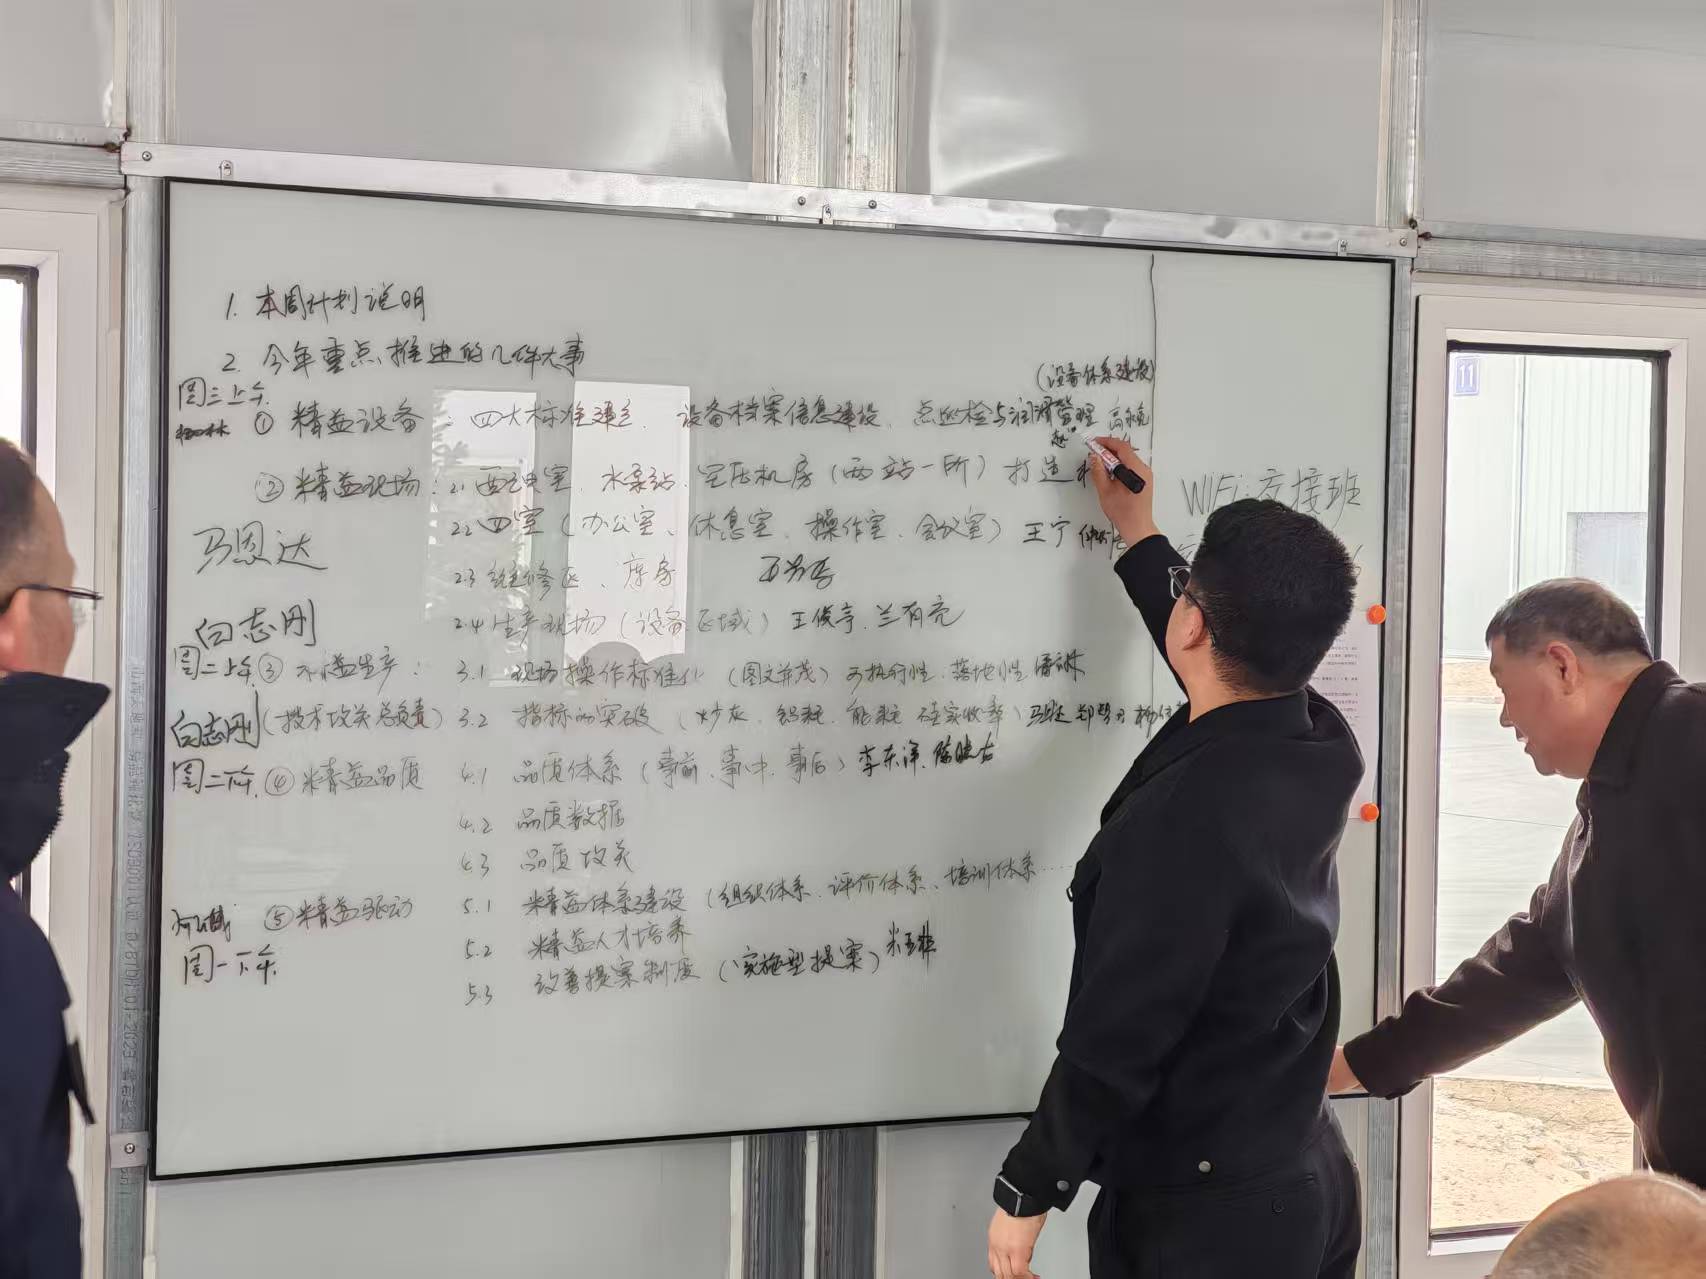 1. 本周计划说明
2. 今年重点推进的几件大事
周三上午
(设备体系建设)
① 精益设备：四大标准建立、设备档案信息建设、点巡检与润滑管理
② 精益现场：2.1 西变室、水泵站、空压机房（两站一所）打造
2.2 四室（办公室、休息室、操作室、会议室）王宁
马恩达
2.3 维修区、库房
2.4 生产现场（设备区域）王俊亭、兰有亮
白志刚
周二上午 ③ 精益生产：3.1 现场操作标准化（图文并茂）可执行性、落地性
白志刚（技术攻关总负责）3.2 指标的突破（炒灰、铝耗、能耗、硅实收率）
周二下午 ④ 精益品质 4.1 品质体系（事前、事中、事后）李东洋
4.2 品质数据
4.3 品质攻关
⑤ 精益驱动 5.1 精益体系建设（组织体系、评价体系、培训体系……
周一下午
5.2 精益人才培养
5.3 改善提案制度（实施型提案）
WIFI：交接班
11